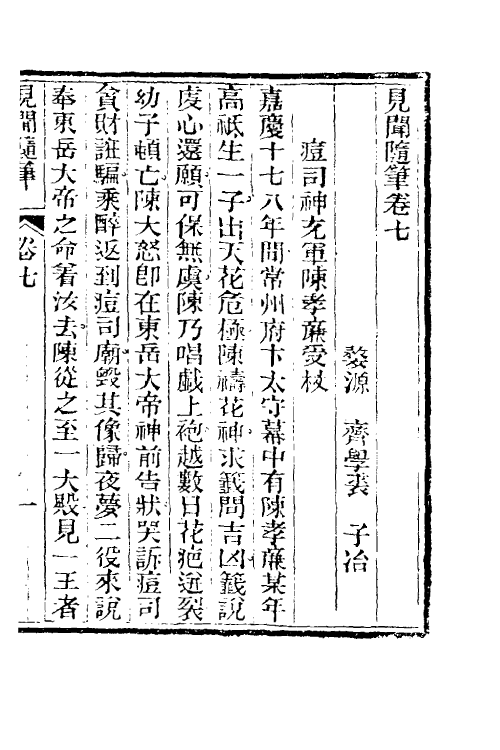 見聞隨筆卷七
婺源 齊學裘 子冶
痘司神充軍陳孝廉受杖
嘉慶十七八年間常州府卞太守幕中有陳孝廉某年
高祗生一子出天花危極陳禱花神求籤問吉凶籤說
虔心還願可保無虞陳乃唱戲上袍越數日花疤迸裂
幼子頓亡陳大怒卽在東岳大帝神前告狀哭訴痘司
貪財誆騙乘醉返到痘司廟毀其像歸夜夢二役來說
奉東岳大帝之命著汝去陳從之至一大殿見一王者
見聞隨筆 卷七 一